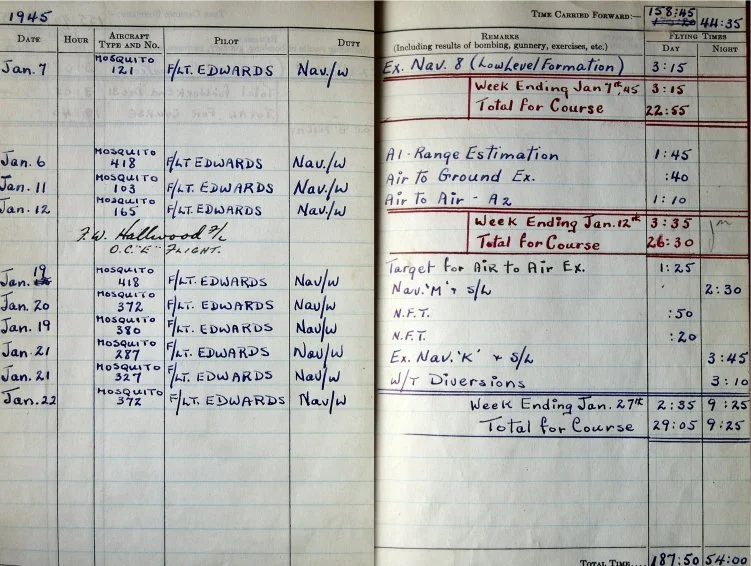 1945
TIME CARRIED FORWARD:— 158:45 44:35
DATE HOUR AIRCRAFT TYPE AND NO. PILOT DUTY REMARKS (Including results of bombing, gunnery, exercises, etc.) FLYING TIMES DAY NIGHT
Jan. 7 MOSQUITO 121 F/LT. EDWARDS Nav/W Ex. Nav. 8 (Low Level Formation) 3:15
Week Ending Jan 7th, 45 3:15
Total for Course 22:55
Jan. 6 MOSQUITO 418 F/LT EDWARDS Nav./W A1-Range Estimation 1:45
Jan. 11 MOSQUITO 103 F/LT. EDWARDS Nav./W Air to Ground Ex. :40
Jan. 12 MOSQUITO 165 F/LT. EDWARDS Nav./W Air to Air - A2 1:10
Week Ending Jan. 12th 3:35
F.W. Hallwood F/L Total for Course 26:30
O.C. "E" FLIGHT.
Jan. 19 MOSQUITO 418 F/LT. EDWARDS Nav/W Target for Air to Air Ex. 1:25
Jan. 20 MOSQUITO 372 F/LT. EDWARDS Nav/W Nav. 'M' & S/L 2:30
Jan. 19 MOSQUITO 380 F/LT. EDWARDS Nav/W N.F.T. :50
Jan. 21 MOSQUITO 287 F/LT. EDWARDS Nav/W N.F.T. :20
Jan. 21 MOSQUITO 327 F/LT. EDWARDS Nav/W Ex. Nav. 'K' & S/L 3:45
Jan. 22 MOSQUITO 372 F/LT. EDWARDS Nav/W W/T Diversions 3:10
Week Ending Jan. 27th 2:35 9:25
Total for Course 29:05 9:25
TOTAL TIME.... 187:50 54:00